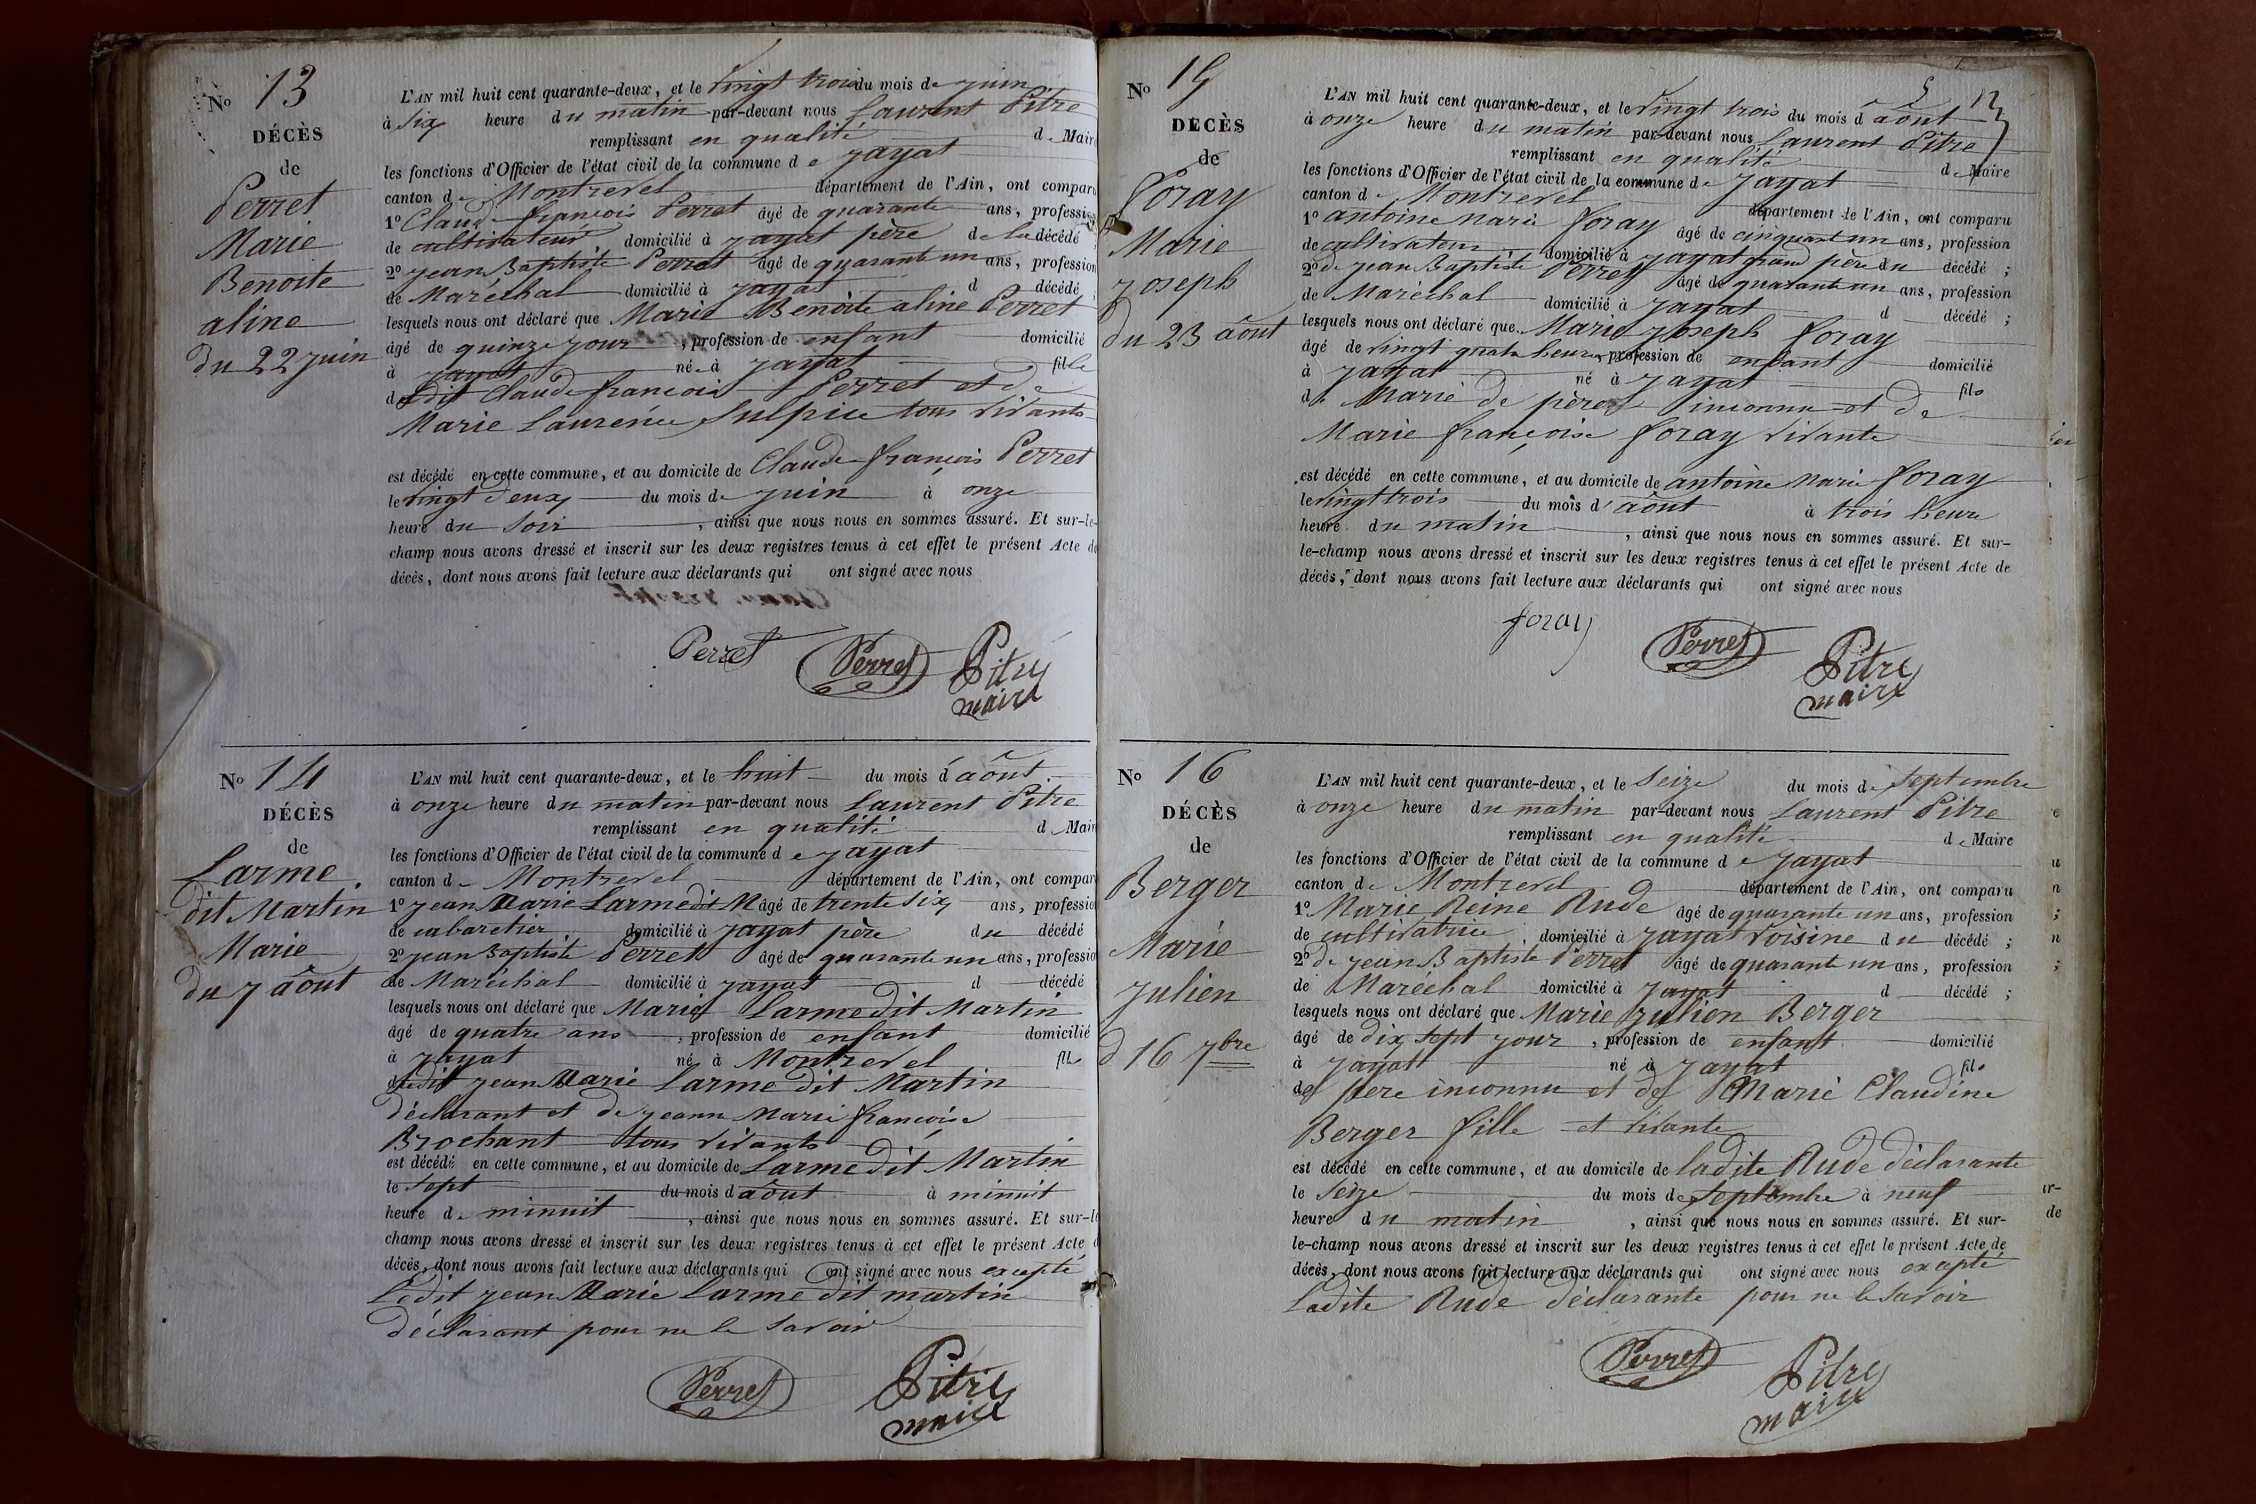 No 13
DÉCÈS
de
Perret
Marie
Benoite
aline
du 22 juin
L'AN mil huit cent quarante-deux, et le vingt trois du mois de juin
à six heure du matin par-devant nous Laurent Pitre
remplissant en qualité de Maire
les fonctions d'Officier de l'état civil de la commune de jayat
canton de Montrevel département de l'Ain, ont comparu
1o Claude françois Perret âgé de quarante ans, profession
de cultivateur, domicilié à jayat père de la décédé ;
2o jean Baptiste Perret âgé de quarante un ans, profession
de Maréchal domicilié à jayat d décédé ;
lesquels nous ont déclaré que Marie Benoite aline Perret
âgé de quinze jour, profession de enfant domicilié
à jayat née à jayat fille
dudit Claude françois Perret et de
Marie Laurence Sulpice tous vivants
est décédé en cette commune, et au domicile de Claude françois Perret
le vingt deux du mois de juin à onze
heure du soir, ainsi que nous nous en sommes assuré. Et sur-le-
champ nous avons dressé et inscrit sur les deux registres tenus à cet effet le présent Acte de
décès, dont nous avons fait lecture aux déclarants qui ont signé avec nous
Perret Perret Pitre
maire
No 14
DÉCÈS
de
Larme
dit Martin
Marie
du 7 août
L'AN mil huit cent quarante-deux, et le huit du mois d'août
à onze heure du matin par-devant nous Laurent Pitre
remplissant en qualité d Maire
les fonctions d'Officier de l'état civil de la commune de jayat
canton de Montrevel département de l'Ain, ont comparu
1o jean Marie Larme dit M âgé de trente six ans, profession
de cabaretier domicilié à jayat père du décédé
2o jean Baptiste Perret âgé de quarante un ans, profession
de Maréchal domicilié à jayat d décédé
lesquels nous ont déclaré que Marie Larme dit Martin
âgé de quatre ans, profession de enfant domicilié
à jayat né à Montrevel fils
dudit jean Marie Larme dit Martin
déclarant et de jeanne Marie françoise
Brochant tous vivants
est décédé en cette commune, et au domicile de Larme dit Martin
le sept du mois d août à minuit
heure de minuit, ainsi que nous nous en sommes assuré. Et sur-le
champ nous avons dressé et inscrit sur les deux registres tenus à cet effet le présent Acte d
décès, dont nous avons fait lecture aux déclarants qui ont signé avec nous excepté
Ledit jean Marie Larme dit martin
déclarant pour ne le savoir
Perret Pitre
maire
No 15
DECÈS
de
Foray
Marie
joseph
du 23 août
L'AN mil huit cent quarante-deux, et le vingt trois du mois d août
à onze heure du matin par-devant nous Laurent Pitre
remplissant en qualité de Maire
les fonctions d'Officier de l'état civil de la commune de jayat
canton de Montrevel département de l'Ain, ont comparu
1o antoine marie foray âgé de cinquante un ans, profession
de cultivateur, domicilié à jayat grand père du décédé ;
2o de jean Baptiste Perret âgé de quarante un ans, profession
de Maréchal domicilié à jayat d décédé ;
lesquels nous ont déclaré que Marie joseph foray
âgé de vingt quatre heures, profession de enfant domicilié
à jayat né à jayat fils
de Marie de père inconnu et de
Marie françoise foray vivante
est décédé en cette commune, et au domicile de antoine marie foray
le vingt trois du mois d'août à trois heure
heure du matin, ainsi que nous nous en sommes assuré. Et sur-
le-champ nous avons dressé et inscrit sur les deux registres tenus à cet effet le présent Acte de
décès, dont nous avons fait lecture aux déclarants qui ont signé avec nous
foray Perret Pitre
maire
No 16
DÉCÈS
de
Berger
Marie
julien
d 16 7bre
L'AN mil huit cent quarante-deux, et le seize du mois de septembre
à onze heure du matin par-devant nous Laurent Pitre
remplissant en qualité de Maire
les fonctions d'Officier de l'état civil de la commune de jayat
canton de Montrevel département de l'Ain, ont comparu
1o Marie Reine Rude âgé de quarante un ans, profession
de cultivatrice, domicilié à jayat voisine du décédé ;
2o de jean Baptiste Perret âgé de quarante un ans, profession
de Maréchal domicilié à jayat d décédé ;
lesquels nous ont déclaré que Marie julien Berger
âgé de dix sept jour, profession de enfant domicilié
à jayat né à jayat fils
de père inconnu et de Marie Claudine
Berger fille et vivante
est décédé en cette commune, et au domicile de ladite Rude déclarante
le seize du mois de septembre à neuf
heure du matin, ainsi que nous nous en sommes assuré. Et sur-
le-champ nous avons dressé et inscrit sur les deux registres tenus à cet effet le présent Acte de
décès, dont nous avons fait lecture aux déclarants qui ont signé avec nous excepté
ladite Rude déclarante pour ne le savoir
Perret Pitre
maire